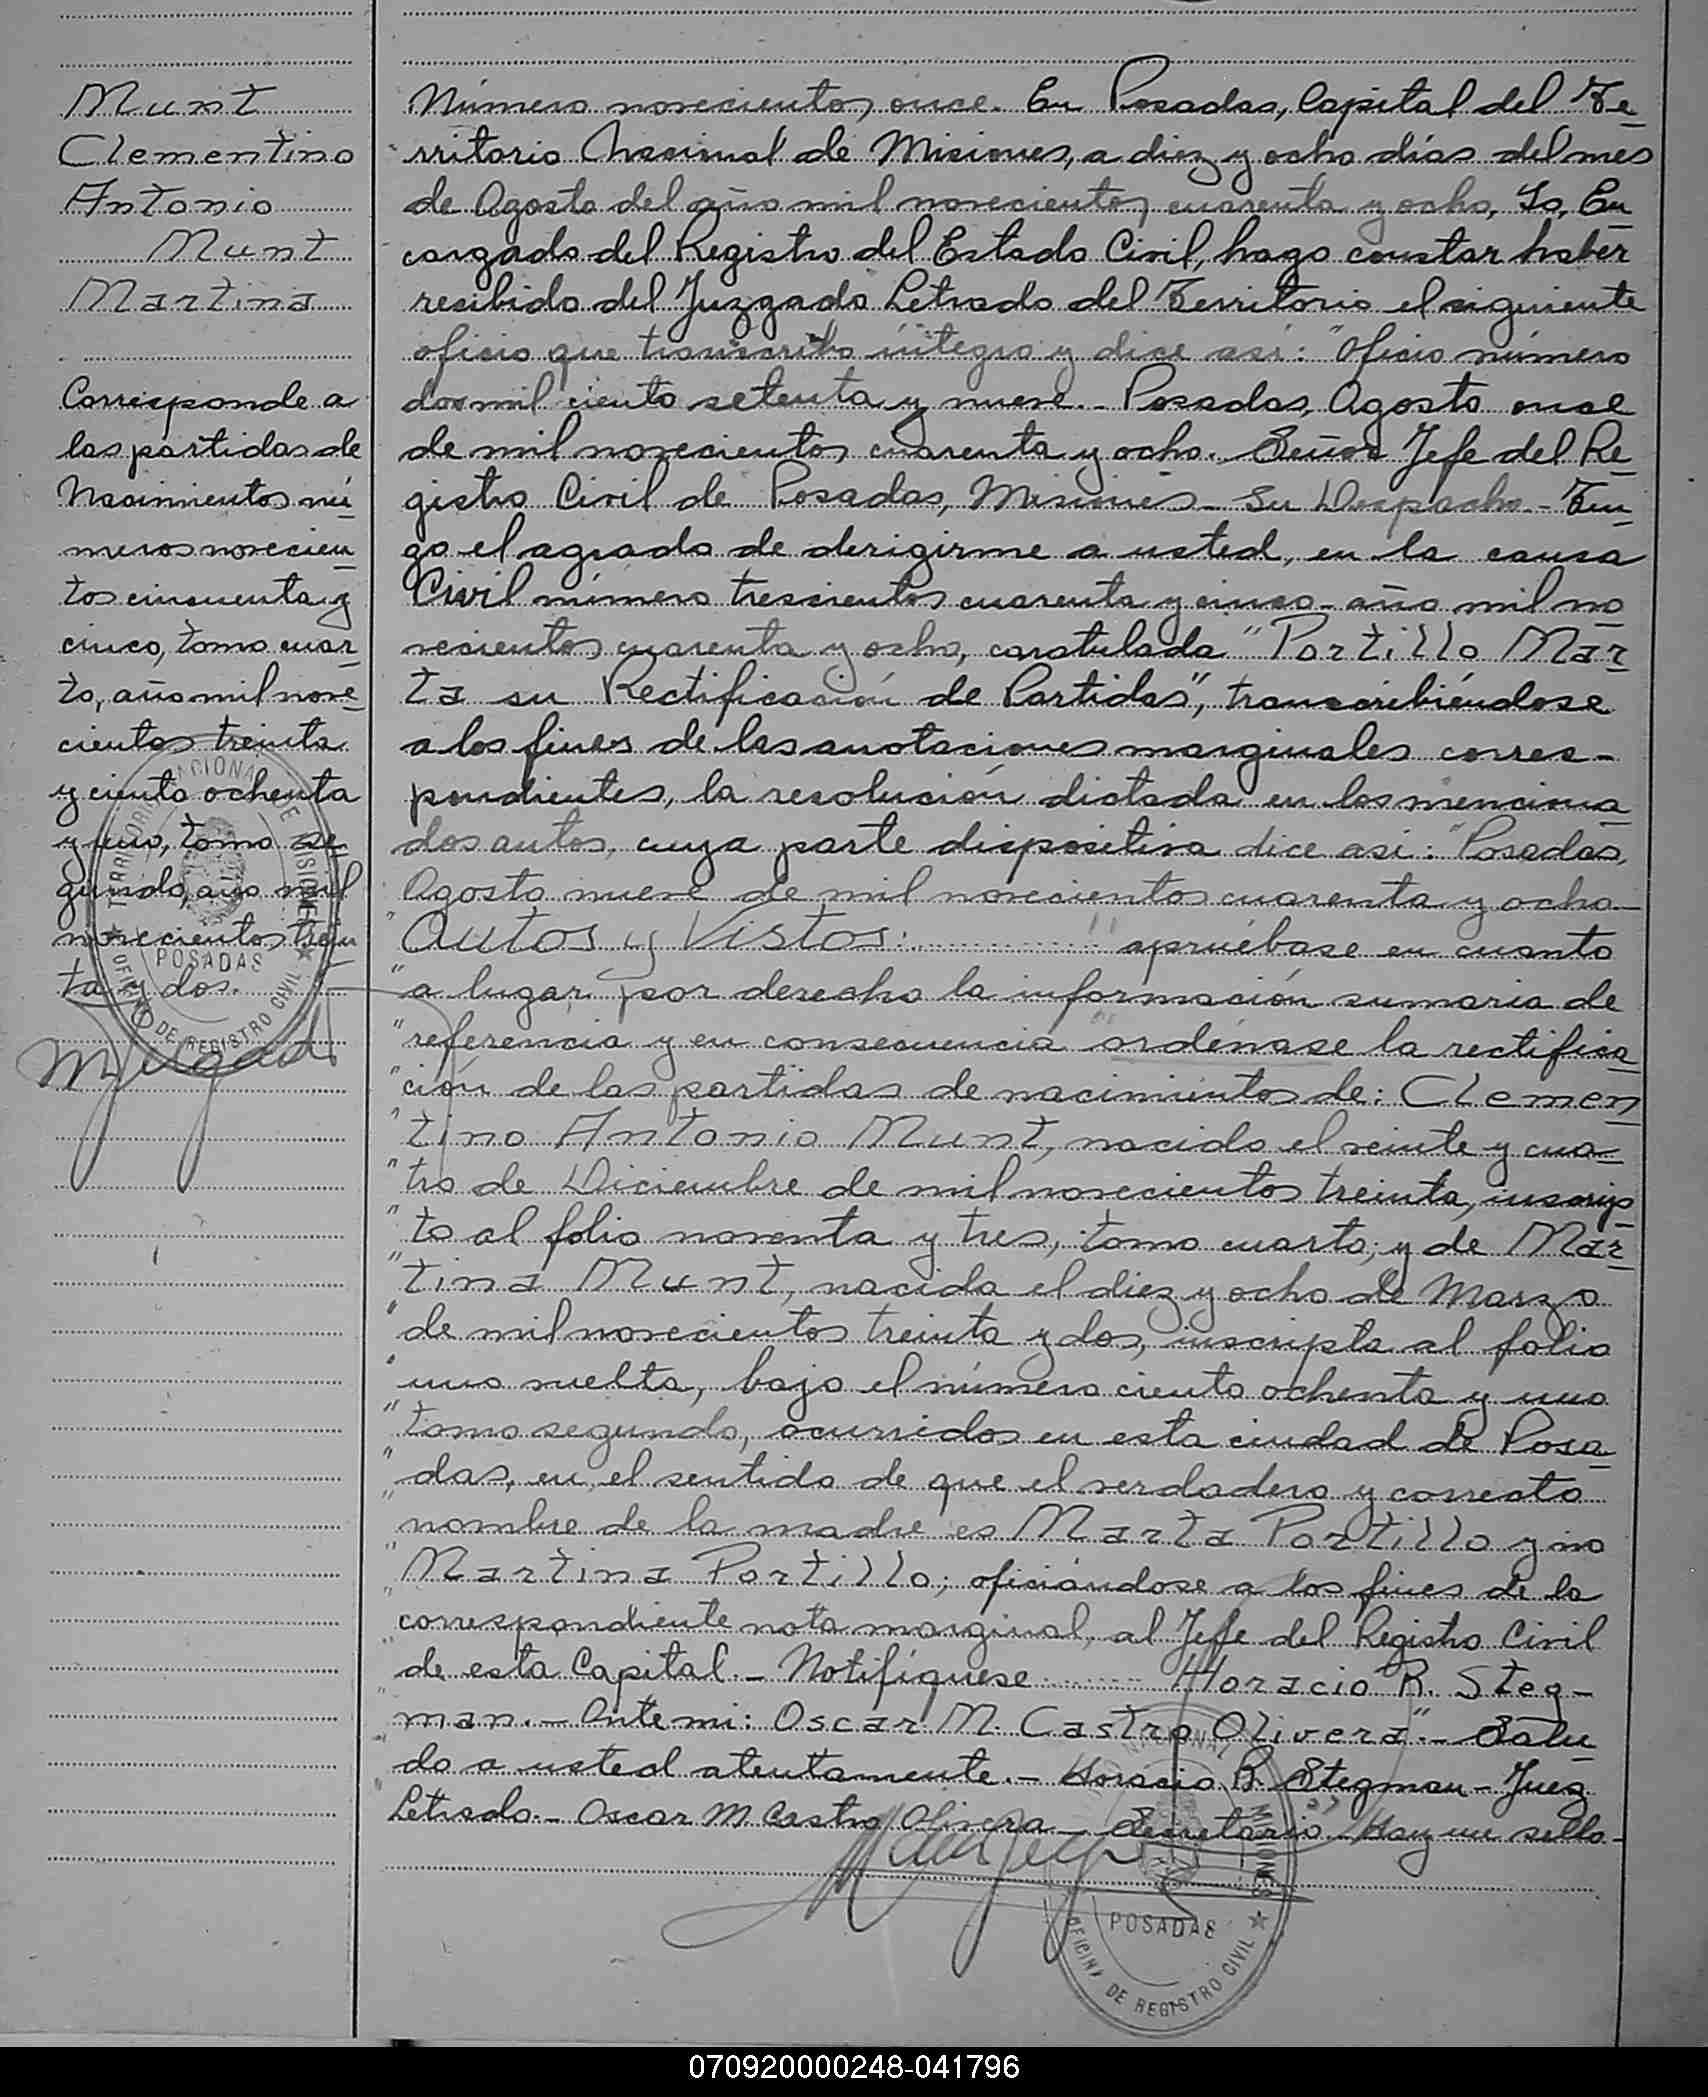 Munt
Clementino
Antonio
Munt
Martina
Corresponde a
las partidas de
Nacimientos nú-
meros novecien-
tos cincuenta y
cinco, tomo cuar-
to, año mil nove-
cientos treinta
y ciento ochenta
y uno, tomo se-
gundo, año mil
novecientos trein-
ta y dos.
TERRITORIO NACIONAL DE MISIONES
POSADAS
OFICINA DE REGISTRO CIVIL
Número novecientos once. En Posadas, Capital del Te-
rritorio Nacional de Misiones, a diez y ocho días del mes
de Agosto del año mil novecientos cuarenta y ocho, Yo, En-
cargado del Registro del Estado Civil, hago constar haber
recibido del Juzgado Letrado del Territorio el siguiente
oficio que transcribo íntegro y dice así: "Oficio número
dos mil ciento setenta y nueve.- Posadas, Agosto once
de mil novecientos cuarenta y ocho. Señor Jefe del Re-
gistro Civil de Posadas, Misiones - Su Despacho.- Ten-
go el agrado de derigirme a usted, en la causa
Civil número trescientos cuarenta y cinco - año mil no-
vecientos cuarenta y ocho, caratulada "Portillo Mar-
ta su Rectificación de Partidas", transcribiéndose
a los fines de las anotaciones marginales corres-
pondientes, la resolución dictada en los menciona-
dos autos, cuya parte dispositiva dice así: "Posadas,
Agosto nueve de mil novecientos cuarenta y ocho.-
"Autos y Vistos: ............ apruébase en cuanto
"a lugar por derecho la información sumaria de
"referencia y en consecuencia ordénase la rectifica-
"ción de las partidas de nacimientos de: Clemen-
"tino Antonio Munt, nacido el veinte y cua-
"tro de Diciembre de mil novecientos treinta, inscrip-
"to al folio noventa y tres, tomo cuarto; y de Mar-
"tina Munt, nacida el diez y ocho de Marzo
"de mil novecientos treinta y dos, inscripta al folio
"uno vuelta, bajo el número ciento ochenta y uno
"tomo segundo, ocurridos en esta ciudad de Posa-
"das, en el sentido de que el verdadero y correcto
"nombre de la madre es Marta Portillo y no
"Martina Portillo; oficiándose a los fines de la
"correspondiente nota marginal, al Jefe del Registro Civil
"de esta Capital.- Notifíquese ........ Horacio R. Steg-
"man.- Ante mi: Oscar M. Castro Olivera".- Salu-
do a usted atentamente.- Horacio R. Stegman - Juez
Letrado.- Oscar M. Castro Olivera - Secretario. Hay un sello.-
NACIONAL
MISIONES
POSADAS
OFICINA DE REGISTRO CIVIL
070920000248-041796